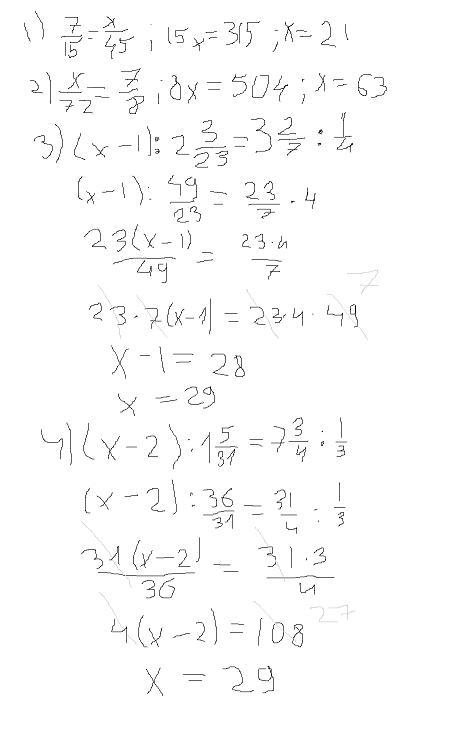 1) 7/15 = x/45 ; 15x = 315 ; x = 21
2) x/72 = 7/8 ; 8x = 504 ; x = 63
3) (x-1) : 2 3/23 = 3 2/7 : 1/4
(x-1) : 49/23 = 23/7 · 4
23(x-1)/49 = 23·4/7
7
23·7(x-1) = 23·4·49
x-1 = 28
x = 29
4) (x-2) : 1 5/31 = 7 3/4 : 1/3
(x-2) : 36/31 = 31/4 : 1/3
31(x-2)/36 = 31·3/4
4(x-2) = 108 27
x = 29